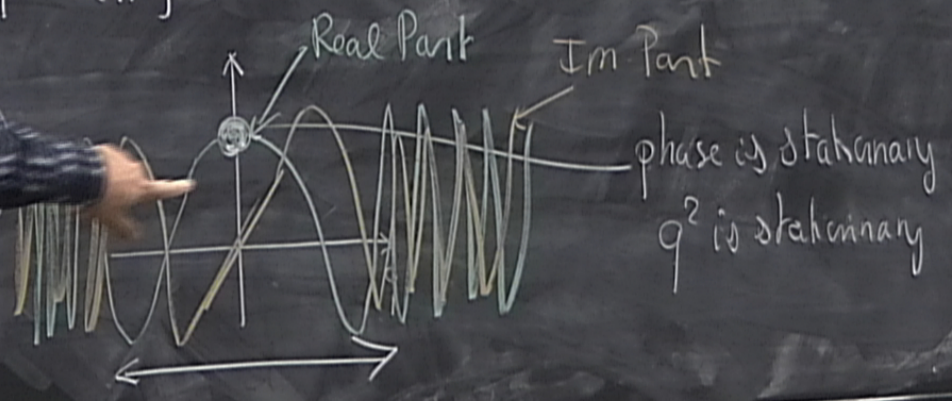 Real Part
Im. Part
phase is stationary
q² is stationary